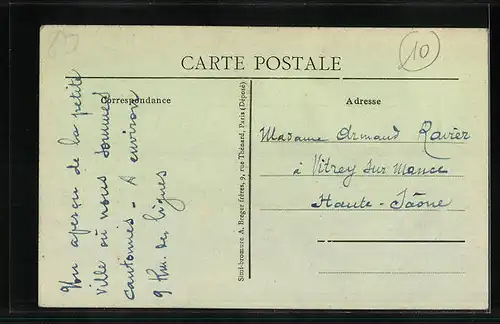 10
CARTE POSTALE
Correspondance
Adresse
Un aperçu de la petite
ville où nous sommes
cantonnés - A environ
9 Km. des lignes
Simi-bromure A. Breger frères, 9, rue Thénard, Paris (Déposé)
Madame Armand Ravier
à Vitrey sur Mance
Haute-Saône